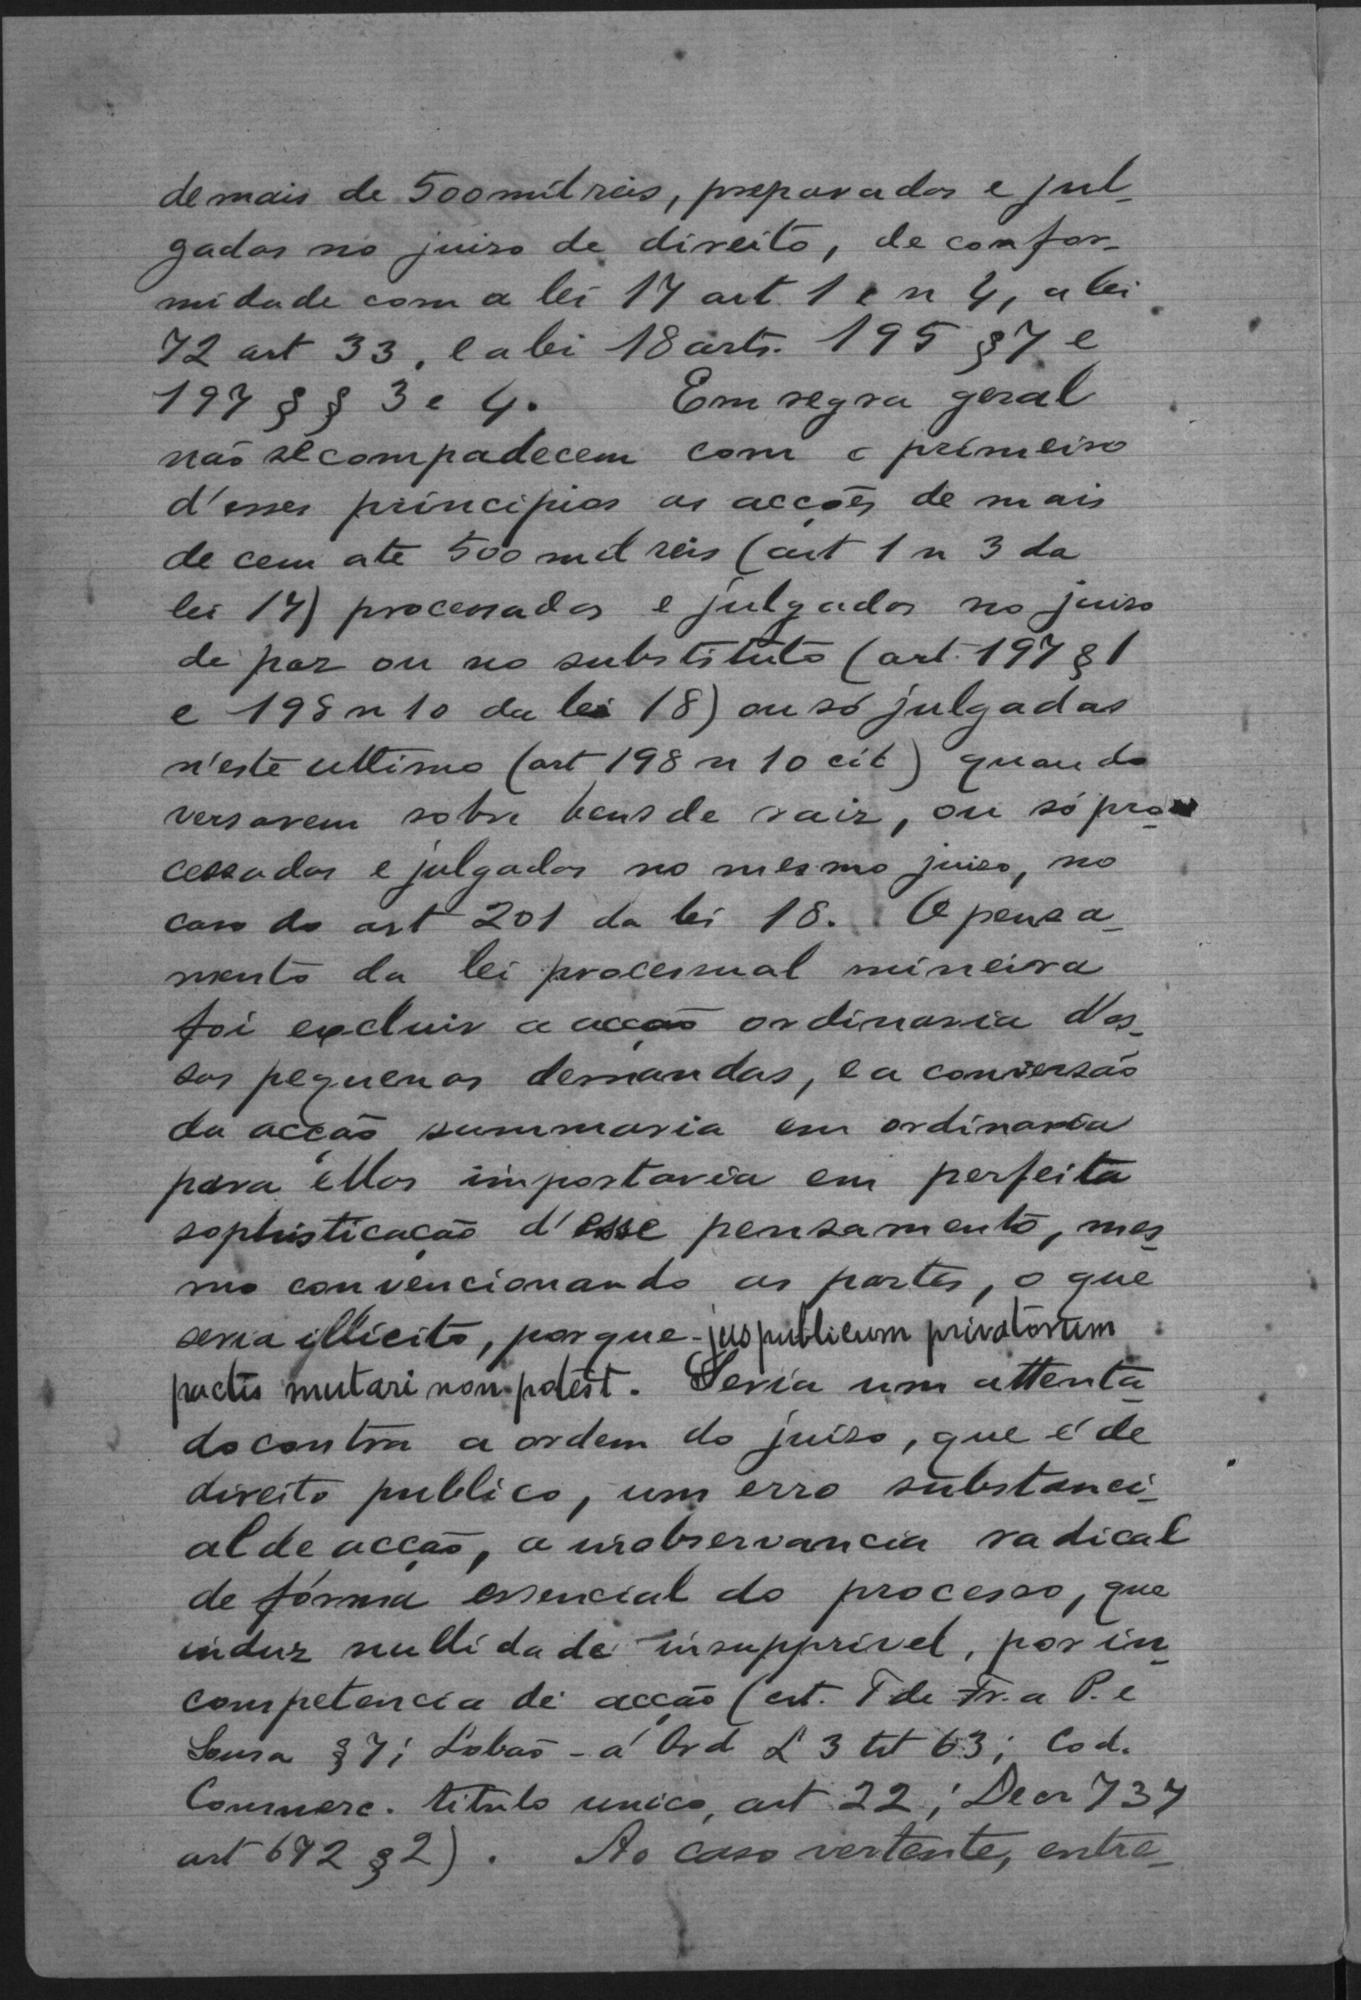 de mais de 500 mil reis, preparadas e jul-
gadas no juizo de direito, de confor-
midade com a lei 17 art. 1 e n 4, a lei
72 art 33, e a lei 18 arts. 195 § 7 e
197 § § 3 e 4. Em regra geral
não se compadecem com o primeiro
d'esses principios as acções de mais
de cem até 500 mil reis (art 1 n 3 da
lei 17) processadas e julgadas no juizo
de paz ou no substituto (art. 197 § 1
e 198 n 10 da lei 18) ou só julgadas
n'este ultimo (art 198 n 10 cit) quando
versarem sobre bens de raiz, ou só pro-
cessadas e julgadas no mesmo juizo, no
caso do art 201 da lei 18. O pensa-
mento da lei processual mineira
foi excluir a acção ordinaria d'es-
sas pequenas demandas, e a conversão
da acção summaria em ordinaria
para ellas importaria em perfeita
sophisticação d'esse pensamento, mes-
mo convencionando as partes, o que
seria illicito, porque - jus publicum privatorum
pactis mutari non potest. Seria um attenta-
do contra a ordem do juizo, que é de
direito publico, um erro substanci-
al de acção, a inobservancia radical
de fórma essencial do processo, que
induz nullidade insupprivel, por in-
competencia de acção (art. T de Fr. a P. e
Sousa § 7; Lobão - á Ord L 3 tit 63; Cod.
Commerc. titulo unico, art 22; Decr 737
art 672 § 2). Ao caso vertente, entre-